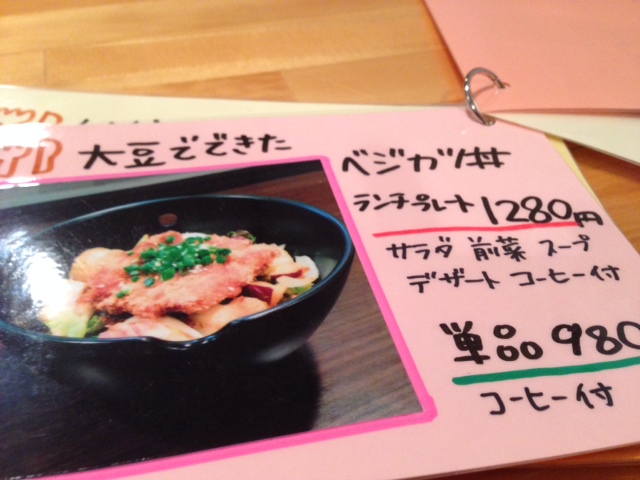 大豆でできた
ベジカツ丼
ランチプレート 1280円
サラダ 前菜 スープ
デザート コーヒー付
単品 980
コーヒー付